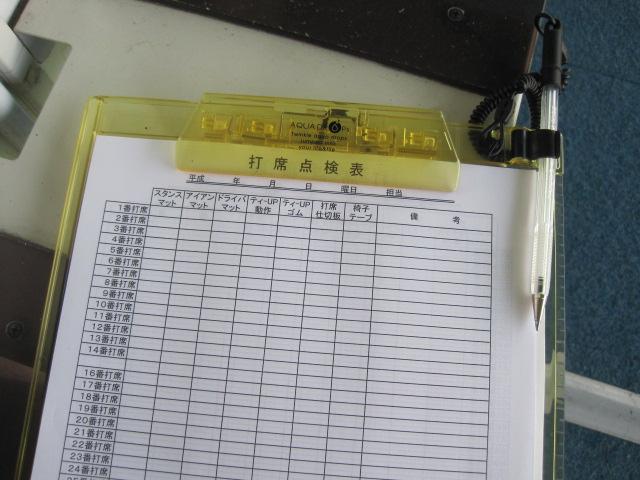 AQUA DROPs
twinkle aqua drops
jumped into
your life&life
打席点検表
平成 年 月 日 曜日 担当
スタンスマット アイアンマット ドライバマット ティーUP動作 ティーUPゴム 打席仕切板 椅子テーブル 備 考
1番打席
2番打席
3番打席
4番打席
5番打席
6番打席
7番打席
8番打席
9番打席
10番打席
11番打席
12番打席
13番打席
14番打席
16番打席
17番打席
18番打席
19番打席
20番打席
21番打席
22番打席
23番打席
24番打席